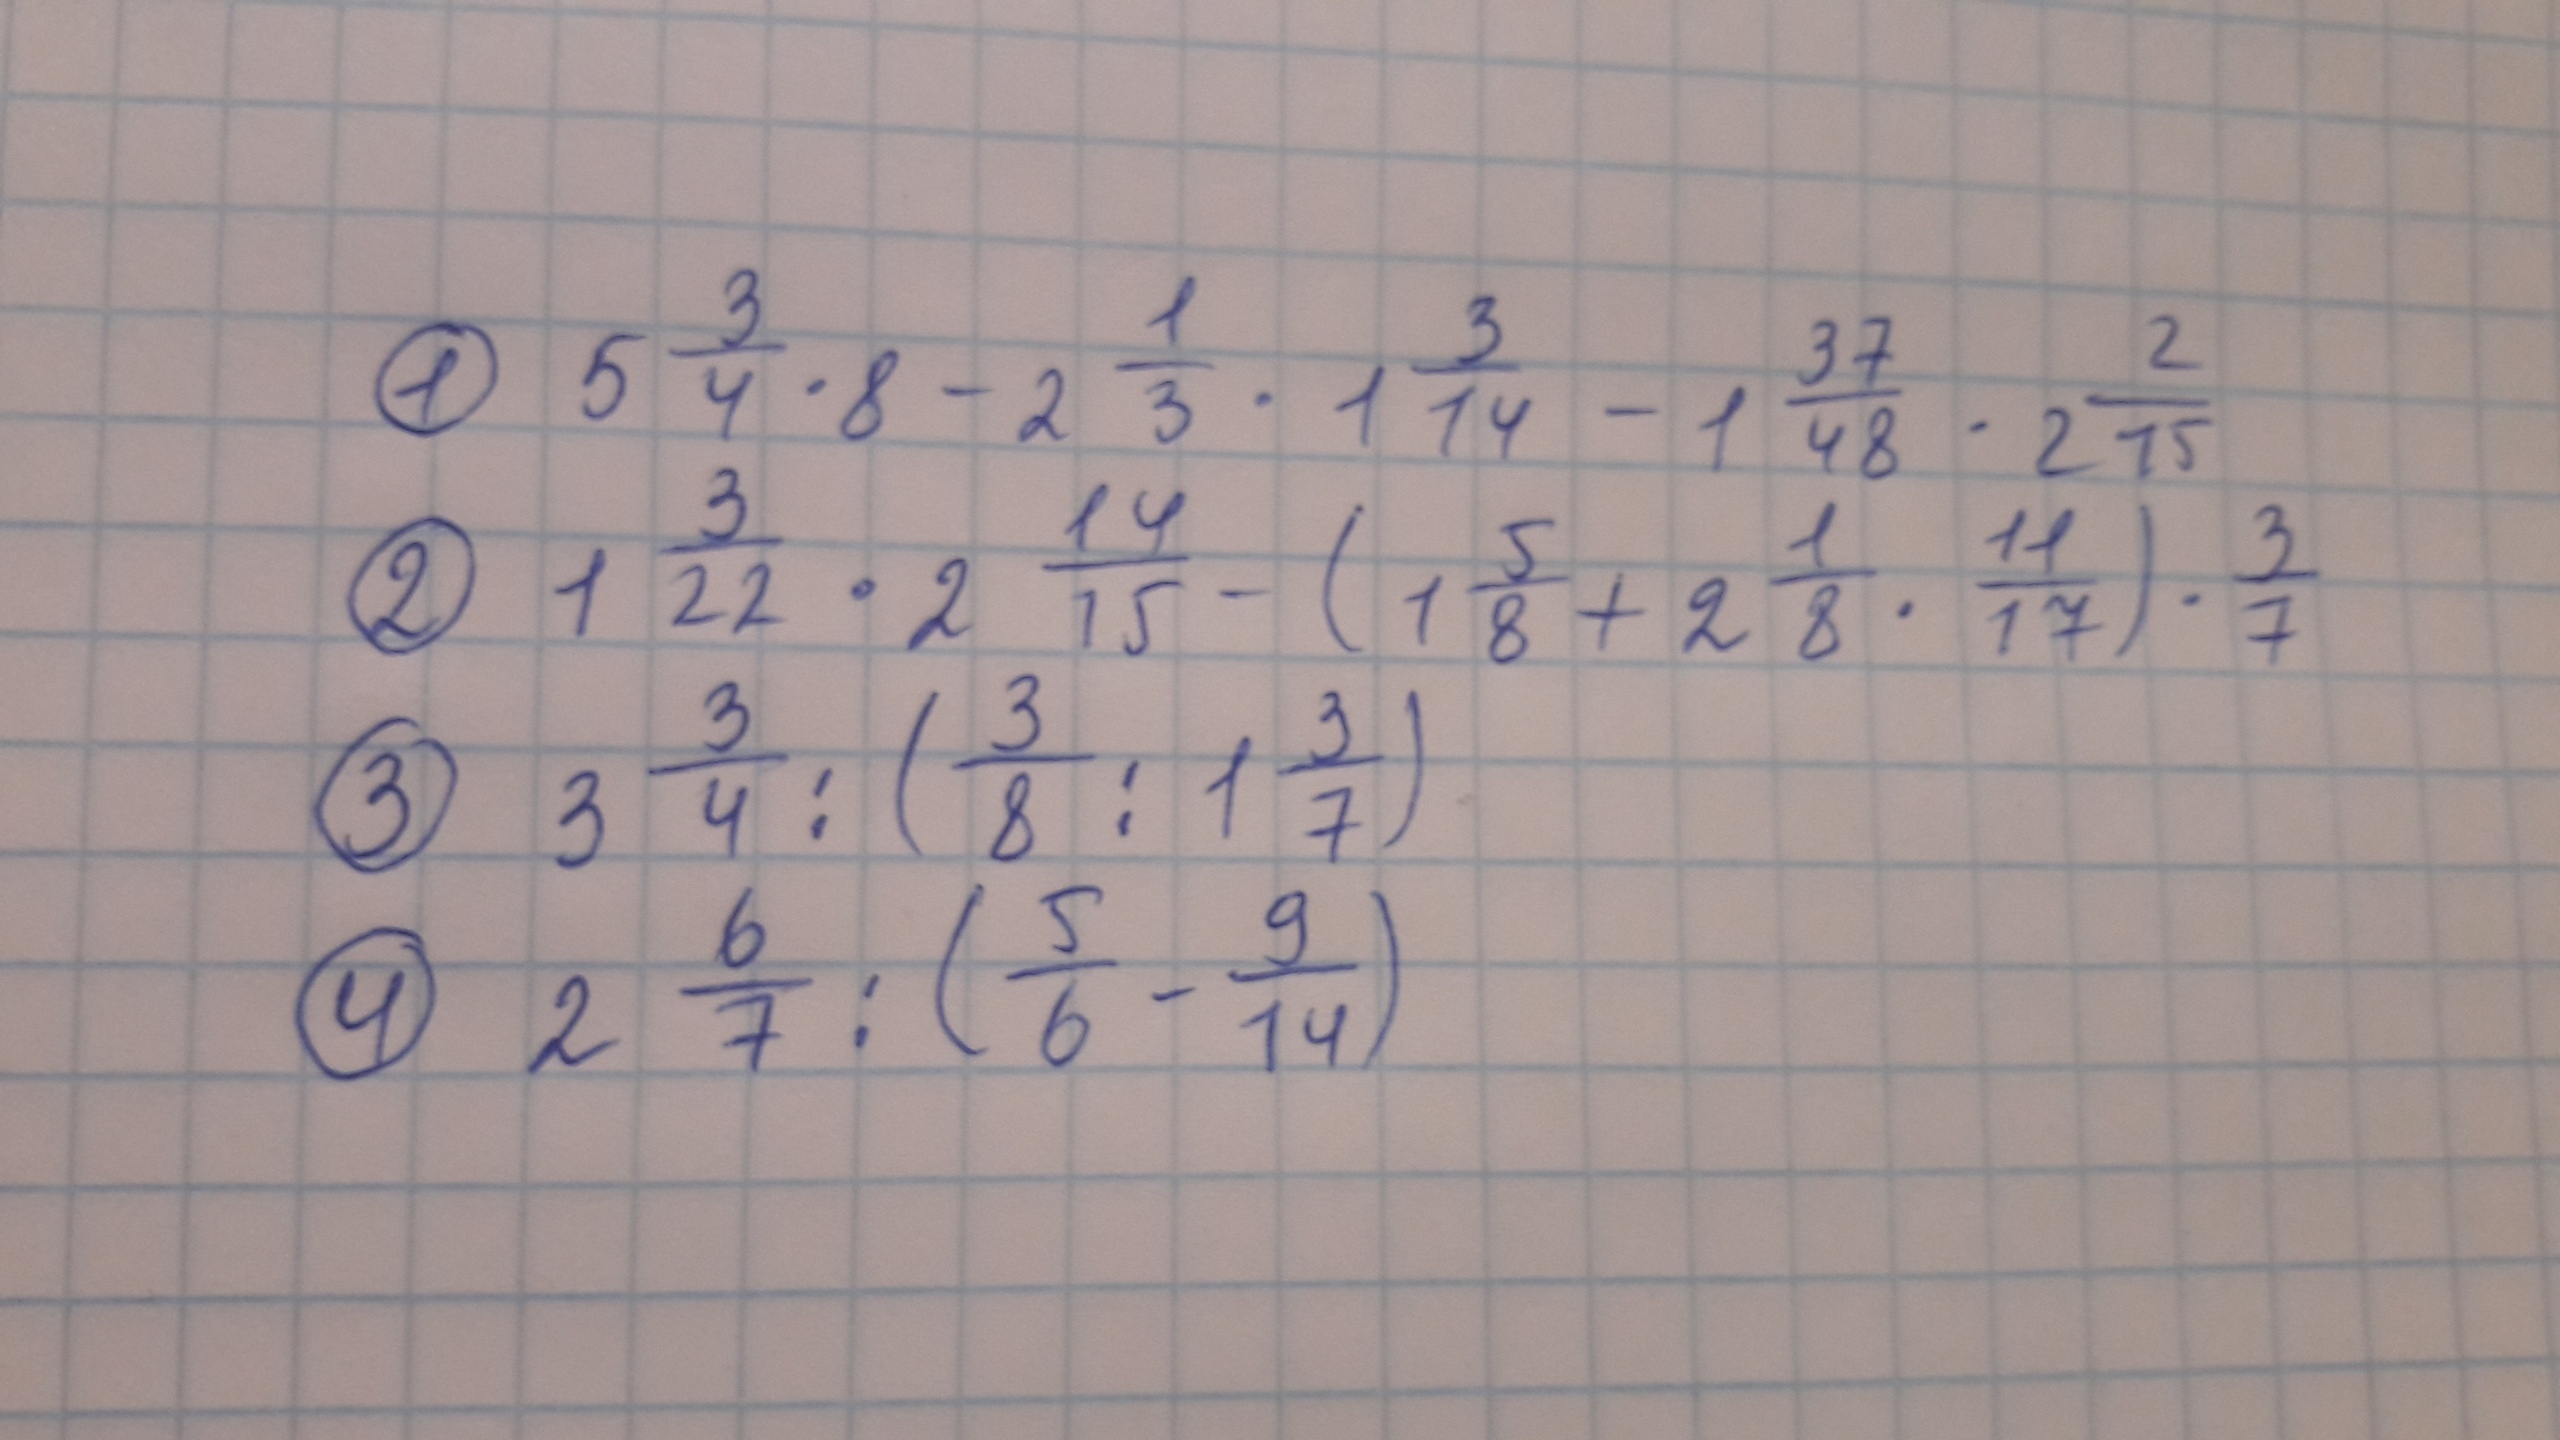 ① 5 3/4 · 8 - 2 1/3 · 1 3/14 - 1 37/48 · 2 2/15
② 1 3/22 · 2 14/15 - (1 5/8 + 2 1/8 · 11/17) · 3/7
③ 3 3/4 : (3/8 : 1 3/7)
④ 2 6/7 : (5/6 - 9/14)